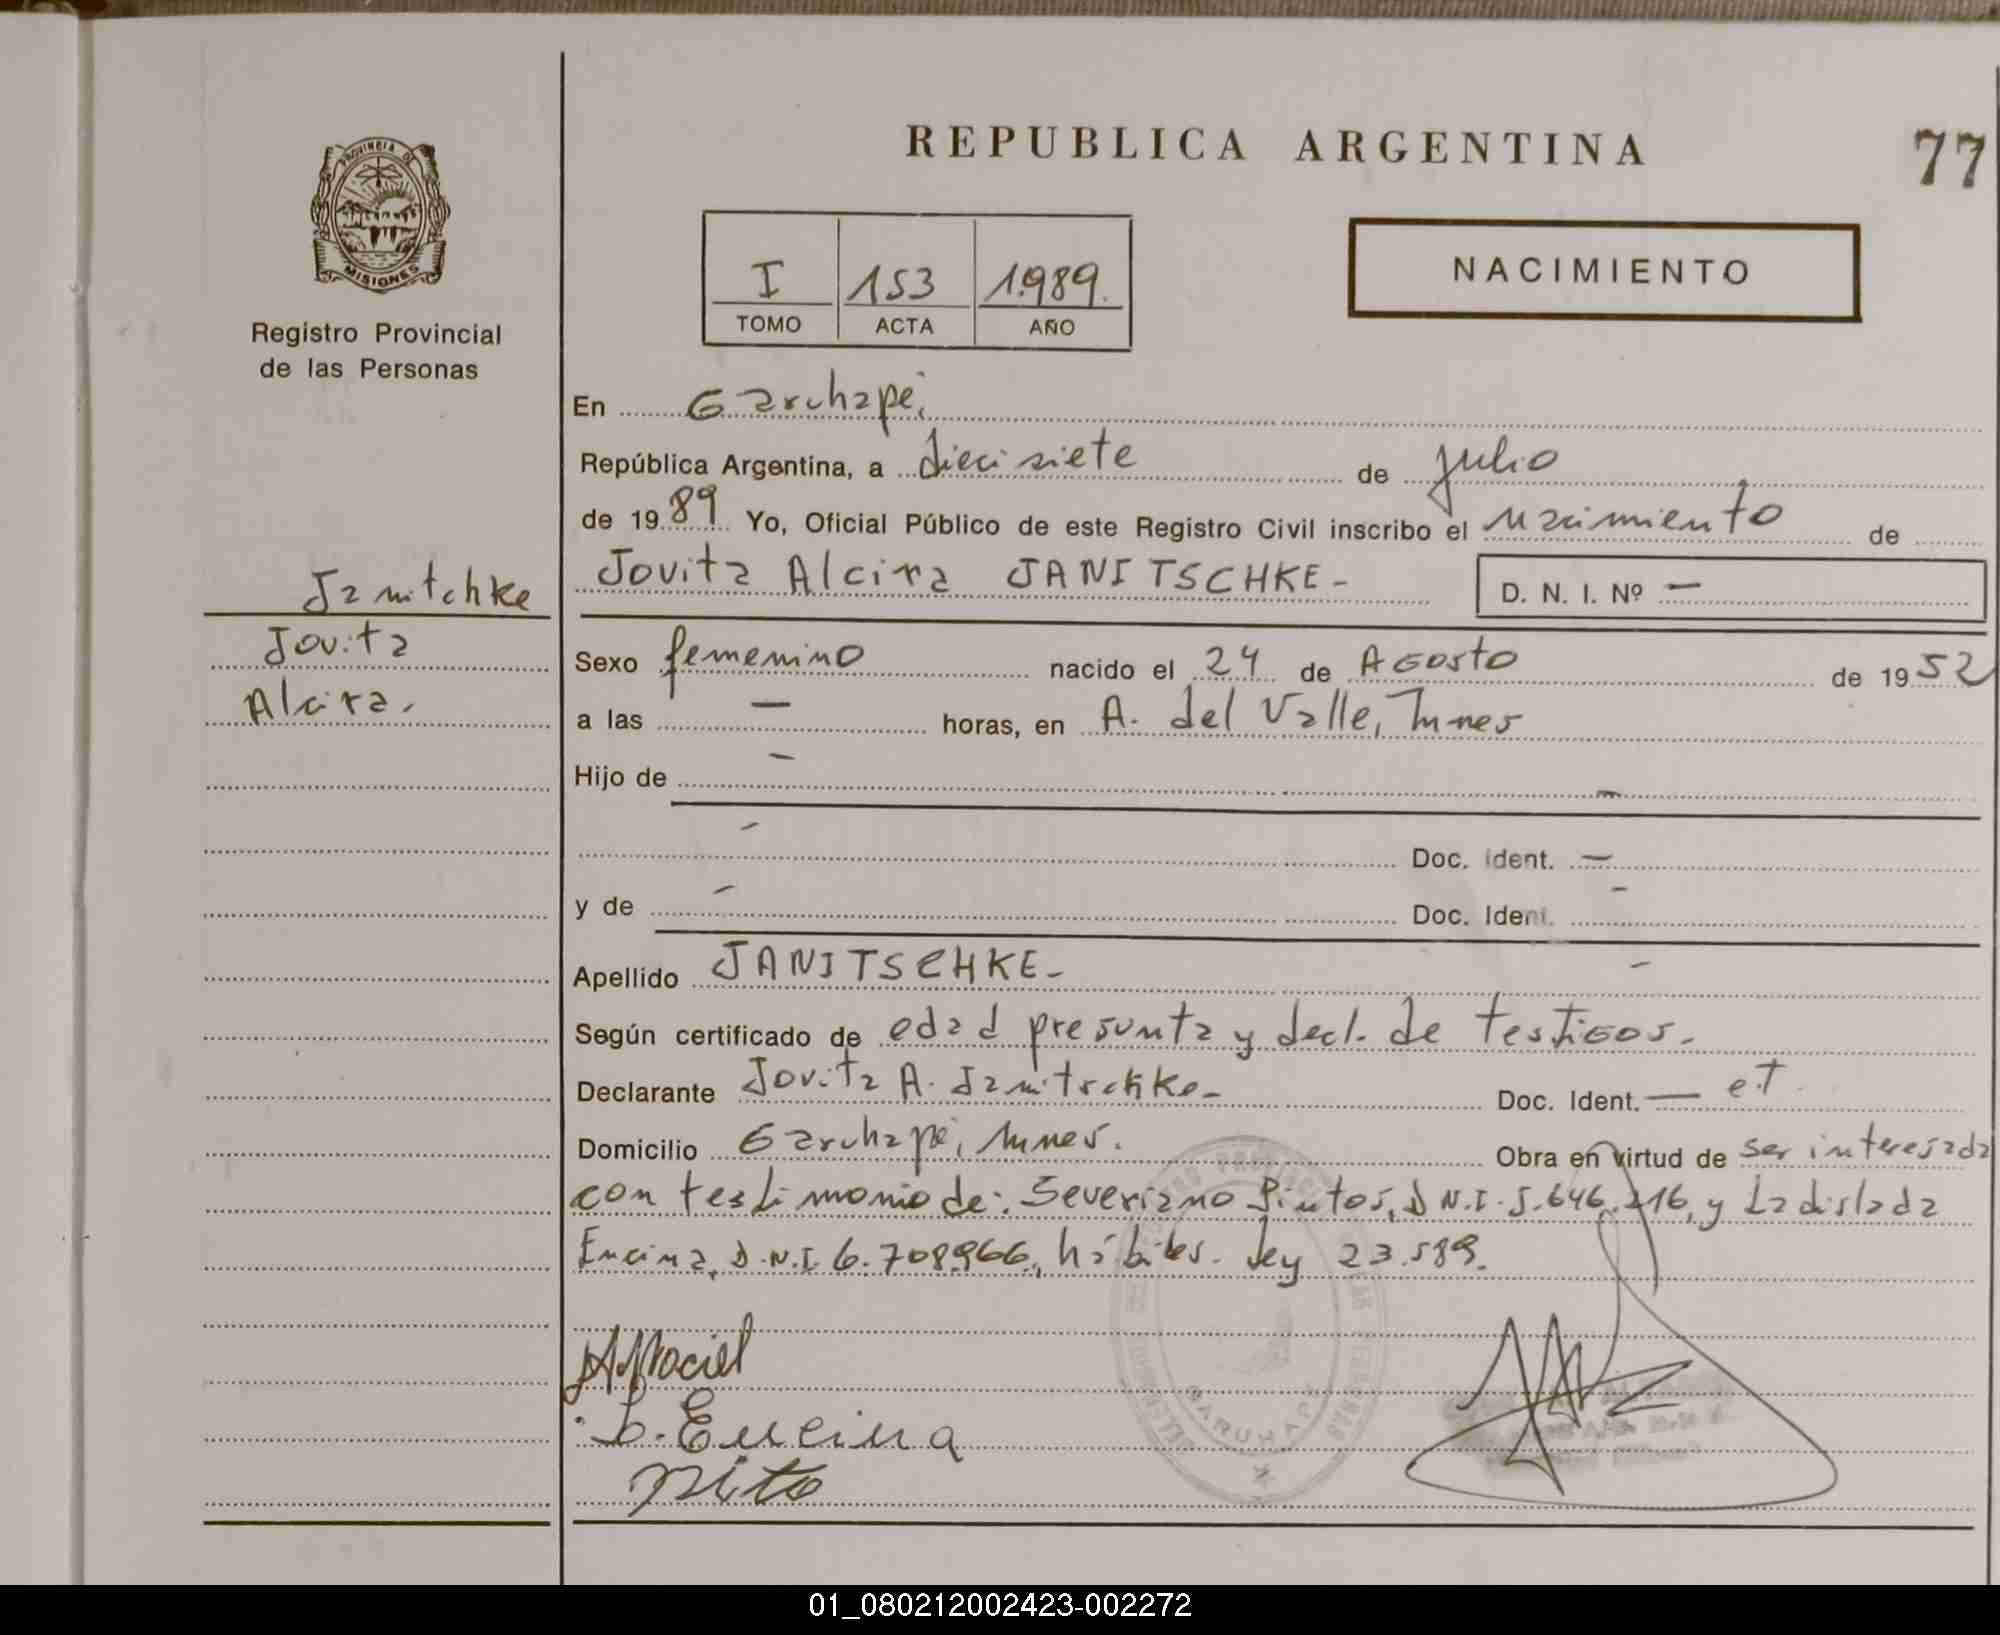 REPUBLICA ARGENTINA
77
PROVINCIA DE
MISIONES
Registro Provincial
de las Personas
I 153 1.989.
TOMO ACTA AÑO
NACIMIENTO
En Garuhapé,
República Argentina, a diecisiete de julio
de 1989 Yo, Oficial Público de este Registro Civil inscribo el nacimiento de
Jovita Alcira JANITSCHKE - D. N. I. Nº —
Janitchke
Jovita
Alcira.
Sexo femenino nacido el 24 de Agosto de 1952
a las — horas, en A. del Valle, Mnes
Hijo de —
Doc. Ident. —
y de — Doc. Ident. —
Apellido JANITSCHKE-
Según certificado de edad presunta y decl. de testigos.
Declarante Jovita A. Janitschke- Doc. Ident. — e.T.
Domicilio Garuhapé, Mnes. Obra en virtud de ser interesada
con testimonio de: Severiano Pintos, D.N.I. 5.646.216, y Ladislada
Encina, D.N.I. 6.708.966, hábiles. Ley 23.589.
L. Encina
GARUHAPE
01_080212002423-002272